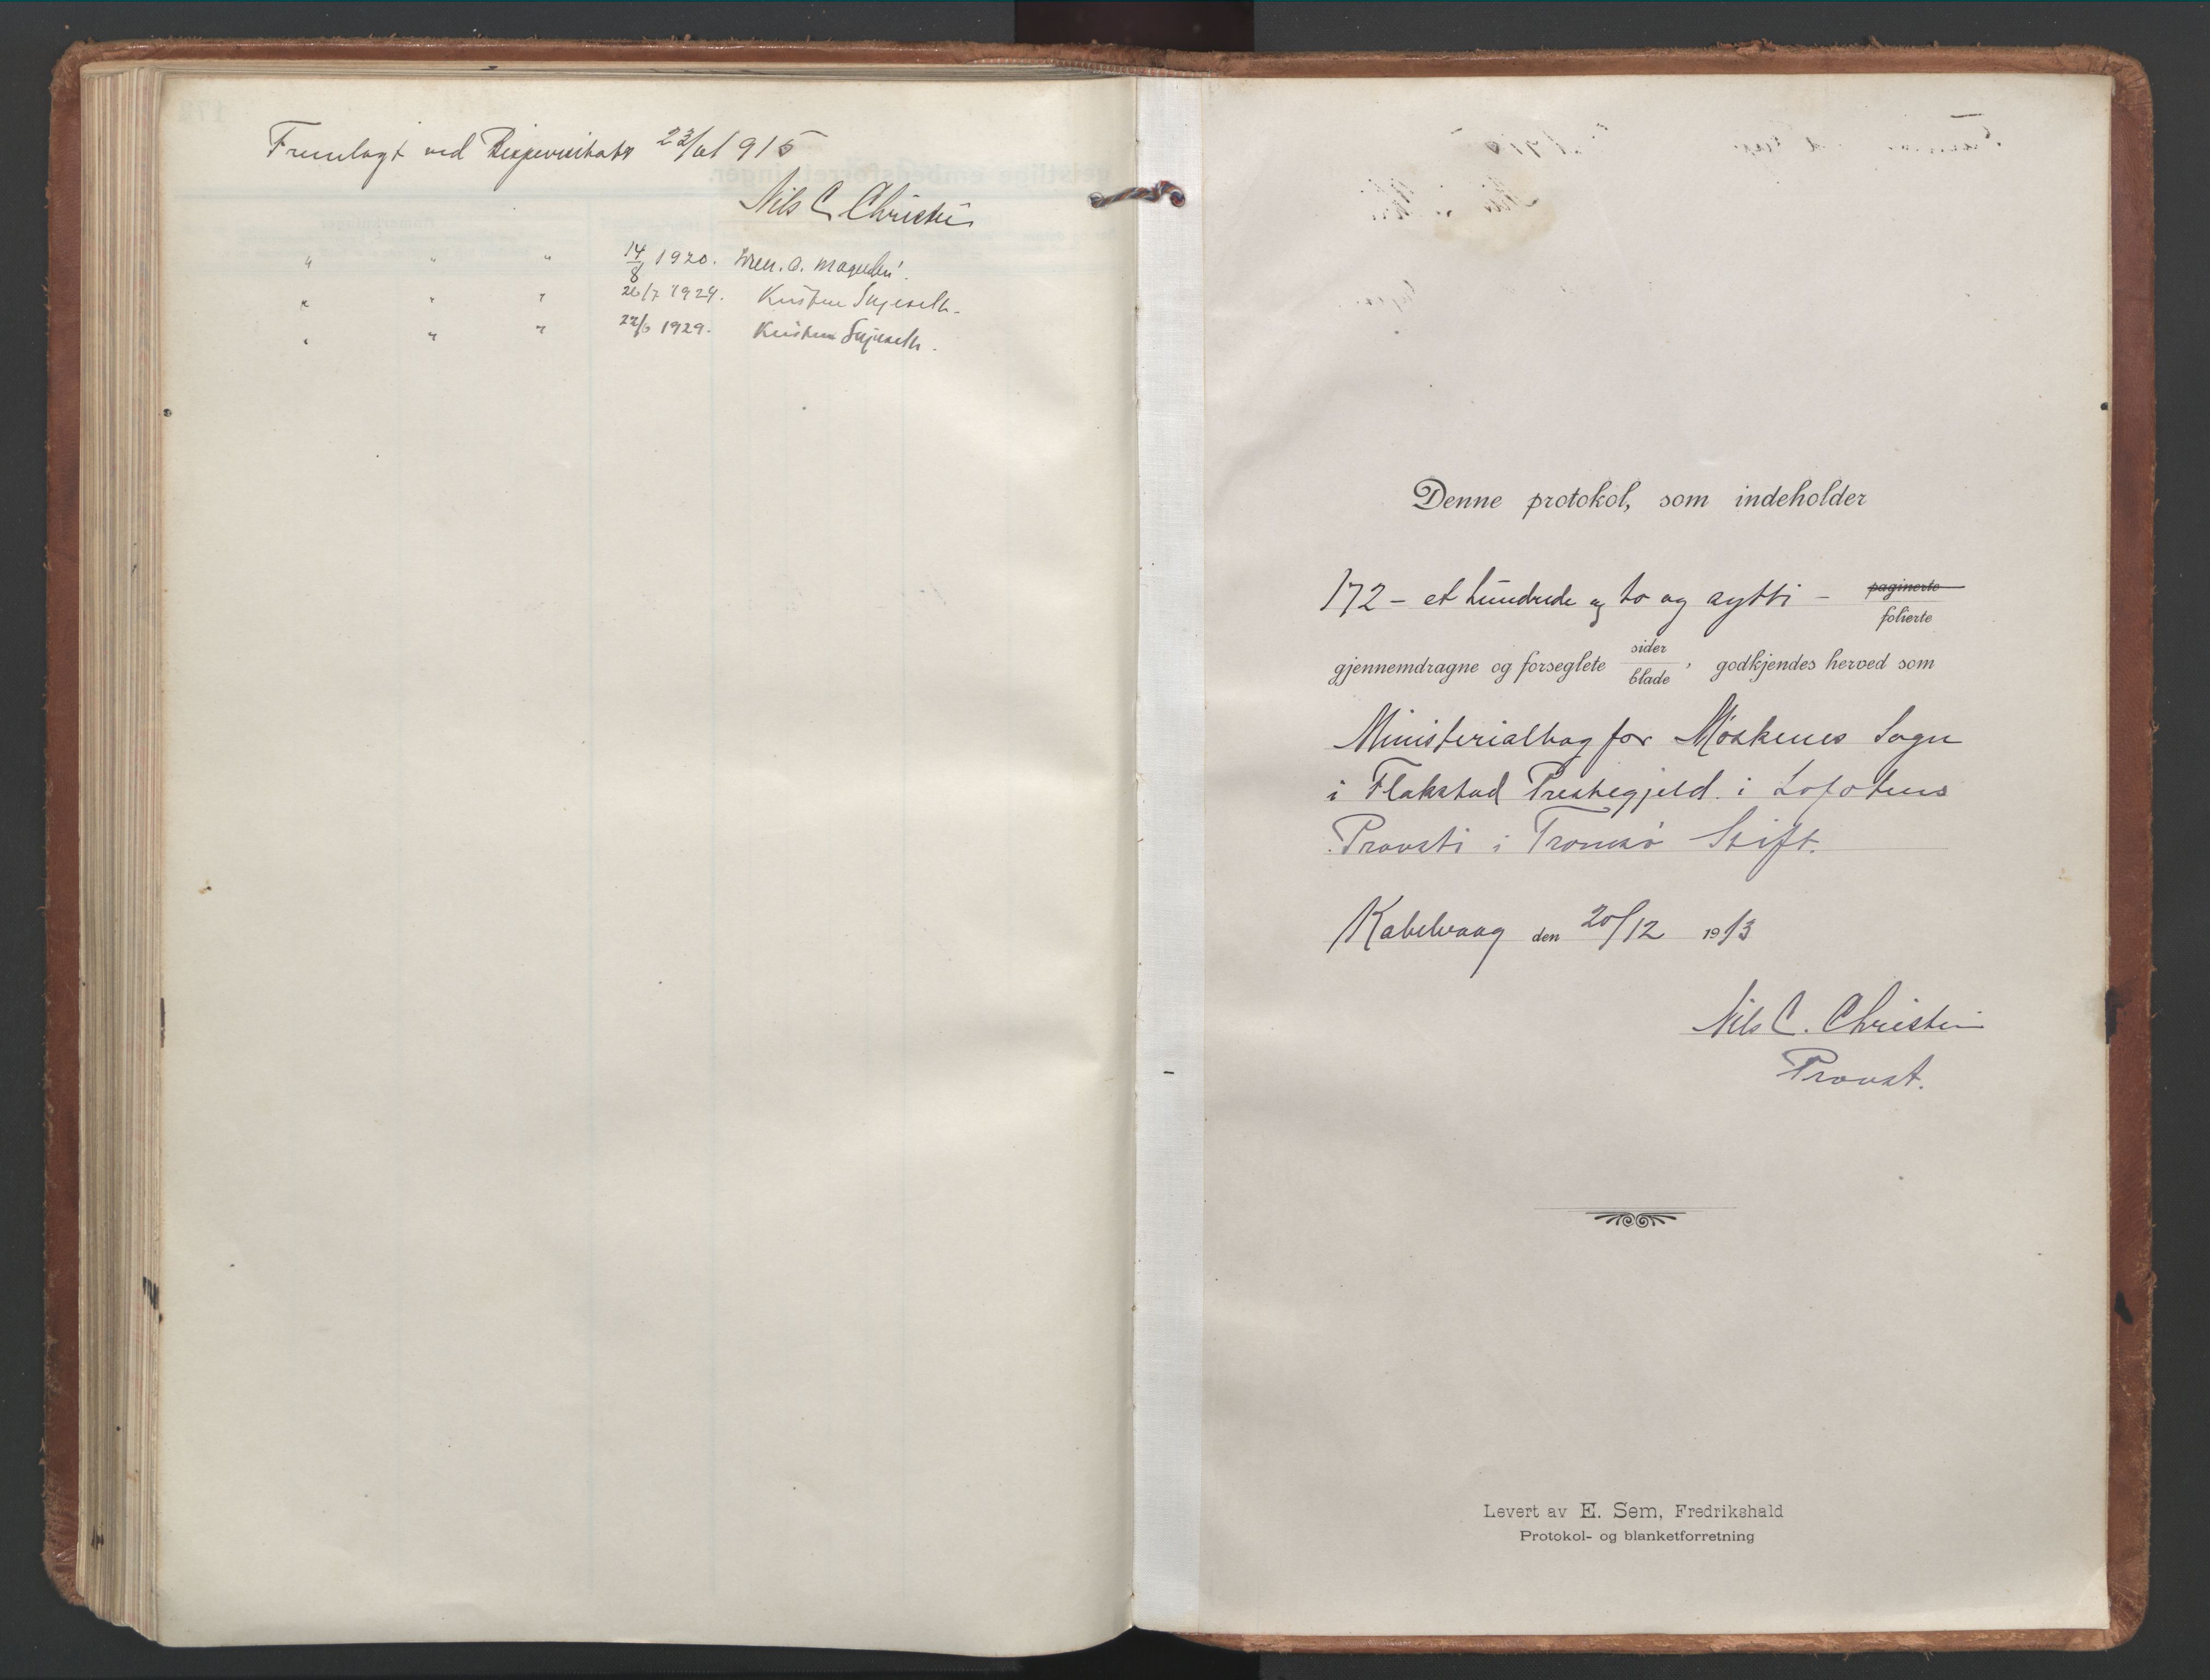 Fremlagt ved Bispevisitats 23/6 1915
Nils C Christie
" " " 14/8 1920.
" " " 26/7 1924. Kristen Skjeseth.
" " " 22/6 1929. Kristen Skjeseth.
Denne protokol, som indeholder
172 – et hundrede og to og sytti – paginerte
folierte
gjennemdragne og forseglete sider
blade, godkjendes herved som
Ministerialbog for Moskenes Sogn
i Flakstad Prestegjeld i Lofotens
Provsti i Tromsø Stift.
Kabelvaag den 20/12 1913
Nils C. Christie
Provst.
Levert av E. Sem, Fredrikshald
Protokol- og blanketforretning